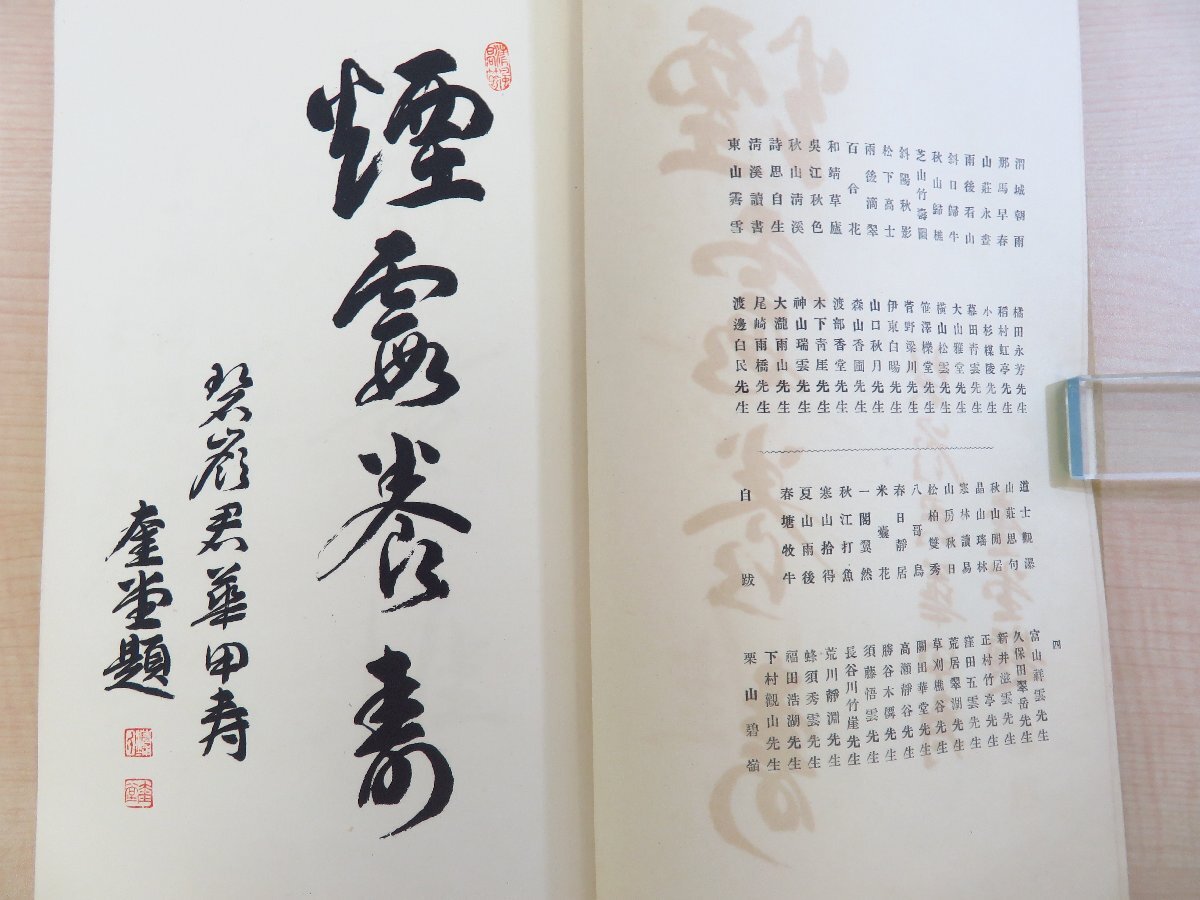 渭城朝雨
那馬早春
山莊永晝
雨後看山
斜日歸牛
秋山歸樵
芝山竹壽圖
斜陽秋影
松下高士
雨後滴翠
百合花
和靖草廬
吳江秋色
秋山清溪
詩思自生
清溪讀書
東山霽雪
橘田永芳先生
稻村虹亭先生
小杉楳陵先生
幕田青雲先生
大山雅堂先生
橫山松雲先生
笹澤櫟堂先生
菅野梁川先生
伊東白暘先生
山口秋月先生
森山香園先生
渡部香堂先生
木下靑厓先生
神山瑞雲先生
大瀧雨山先生
尾崎雨橋先生
渡邊白民先生
道士觀瀑
山莊思句
秋山閒居
晶山瑞林
寒林讀易
山房秋日
松柏雙秀
八哥鳥
春日靜居
米囊花
一閣翼然
秋江打魚
寒山拾得
夏山雨後
春塘牧牛
自跋
四
富山祥雲先生
久保田翠岳先生
新井滋雲先生
正村竹亭先生
窪田五雲先生
荒居翠湖先生
草刈樵谷先生
關田華堂先生
高瀨靜谷先生
勝谷木僊先生
須藤悟雲先生
長谷川竹崖先生
荒川靜淵先生
蜂須秀雲先生
福田浩湖先生
下村觀山先生
栗山碧嶺
煙霞養壽
碧嶺君華甲寿
奎堂題